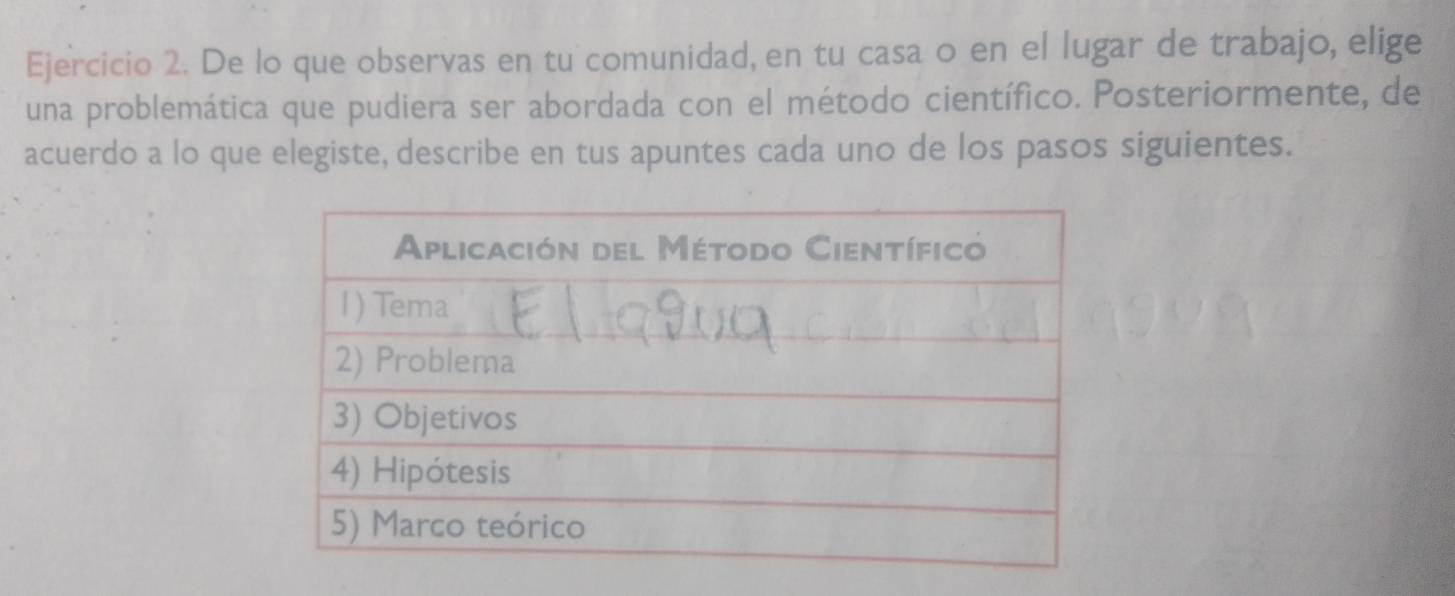 Ejercicio 2. De lo que observas en tu comunidad, en tu casa o en el lugar de trabajo, elige
una problemática que pudiera ser abordada con el método científico. Posteriormente, de
acuerdo a lo que elegiste, describe en tus apuntes cada uno de los pasos siguientes.
APLICACIÓN DEL MÉTODO CIENTÍFICO
1) Tema El agua del agua
2) Problema
3) Objetivos
4) Hipótesis
5) Marco teórico